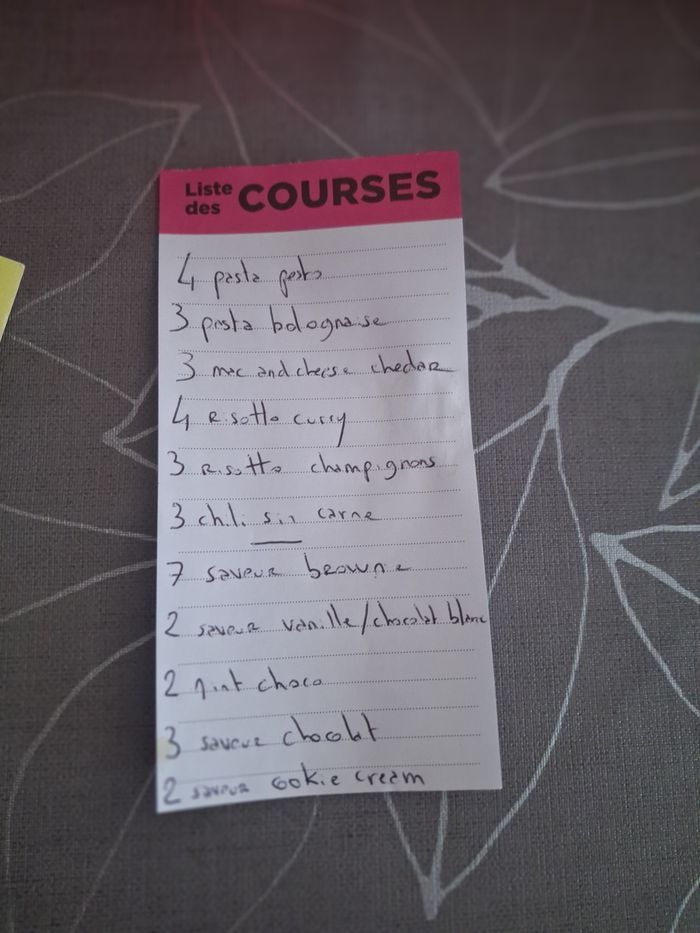 Liste des COURSES
4 pasta pesto
3 pasta bolognaise
3 mac and cheese chedar
4 Risotto curry
3 Risotto champignons
3 chili sin carne
7 saveur brownie
2 saveur vanille/chocolat blanc
2 mint choco
3 saveur chocolat
2 saveur cookie cream